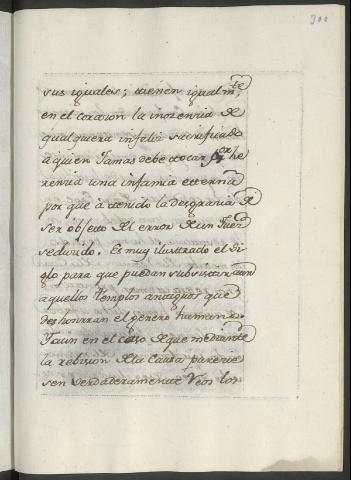 300
sus iguales; tienen igualm.te
en el corazon la inozencia de
qualquiera infeliz sacrificado
a quien Jamas debe tocar por he
rencia una infamia etterna
por que à ttenido la desgracia de
ser objetto del error de un Juez
seducido. Es muy ilusttrado el Si
glo para que puedan subsistir aun
aquellos templos antiguos que
deshonrran el genero humano.
Yaun en el caso de que mediante
la rebision de la Causa parecie
sen verdaderamente Reos los